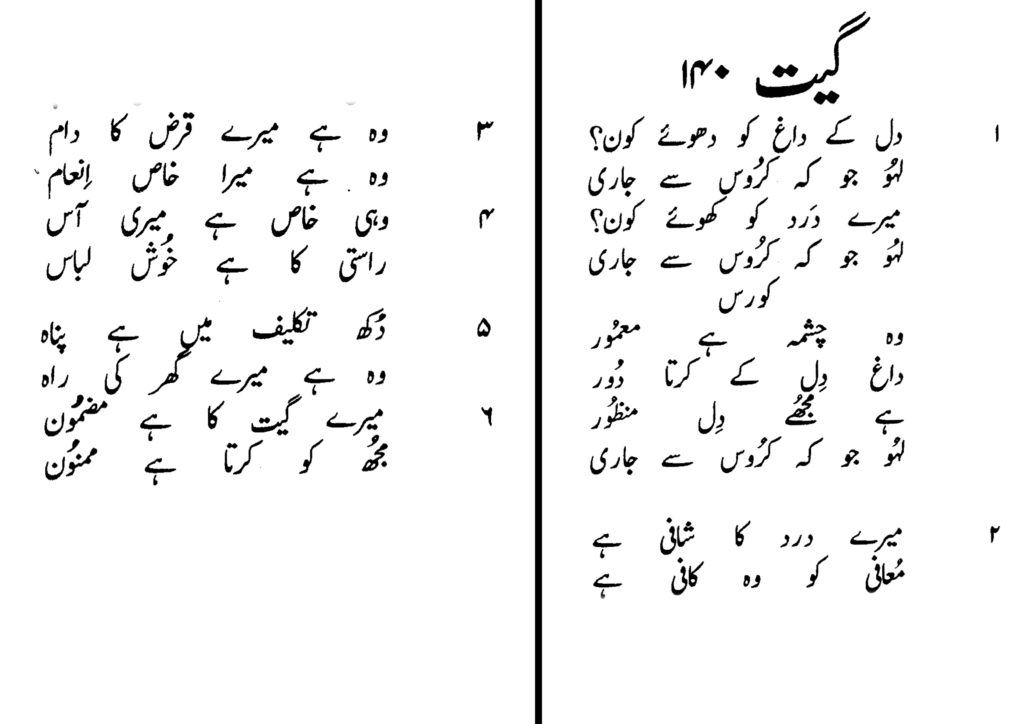 گیت ۱۴۰
۱ دل کے داغ کو دھوئے کون؟
لہُو جو کہ کرُوس سے جاری
میرے دَرد کو کھوئے کون؟
لہُو جو کہ کرُوس سے جاری
کورس
وہ چشمہ ہے معمُور
داغ دِل کے کرتا دُور
ہے مجُھے دِل منظُور
لہُو جو کہ کرُوس سے جاری
۲ میرے درد کا شافی ہے
مُعافی کو وہ کافی ہے
۳ وہ ہے میرے قرض کا دام
وہ ہے میرا خاص اِنعام
۴ وہی خاص ہے میری آس
راستی کا ہے خُوش لباس
۵ دُکھ تکلیف میں ہے پناہ
وہ ہے میرے گھر کی راہ
۶ میرے گیت کا ہے مضمُون
مجُھ کو کرتا ہے ممنوُن